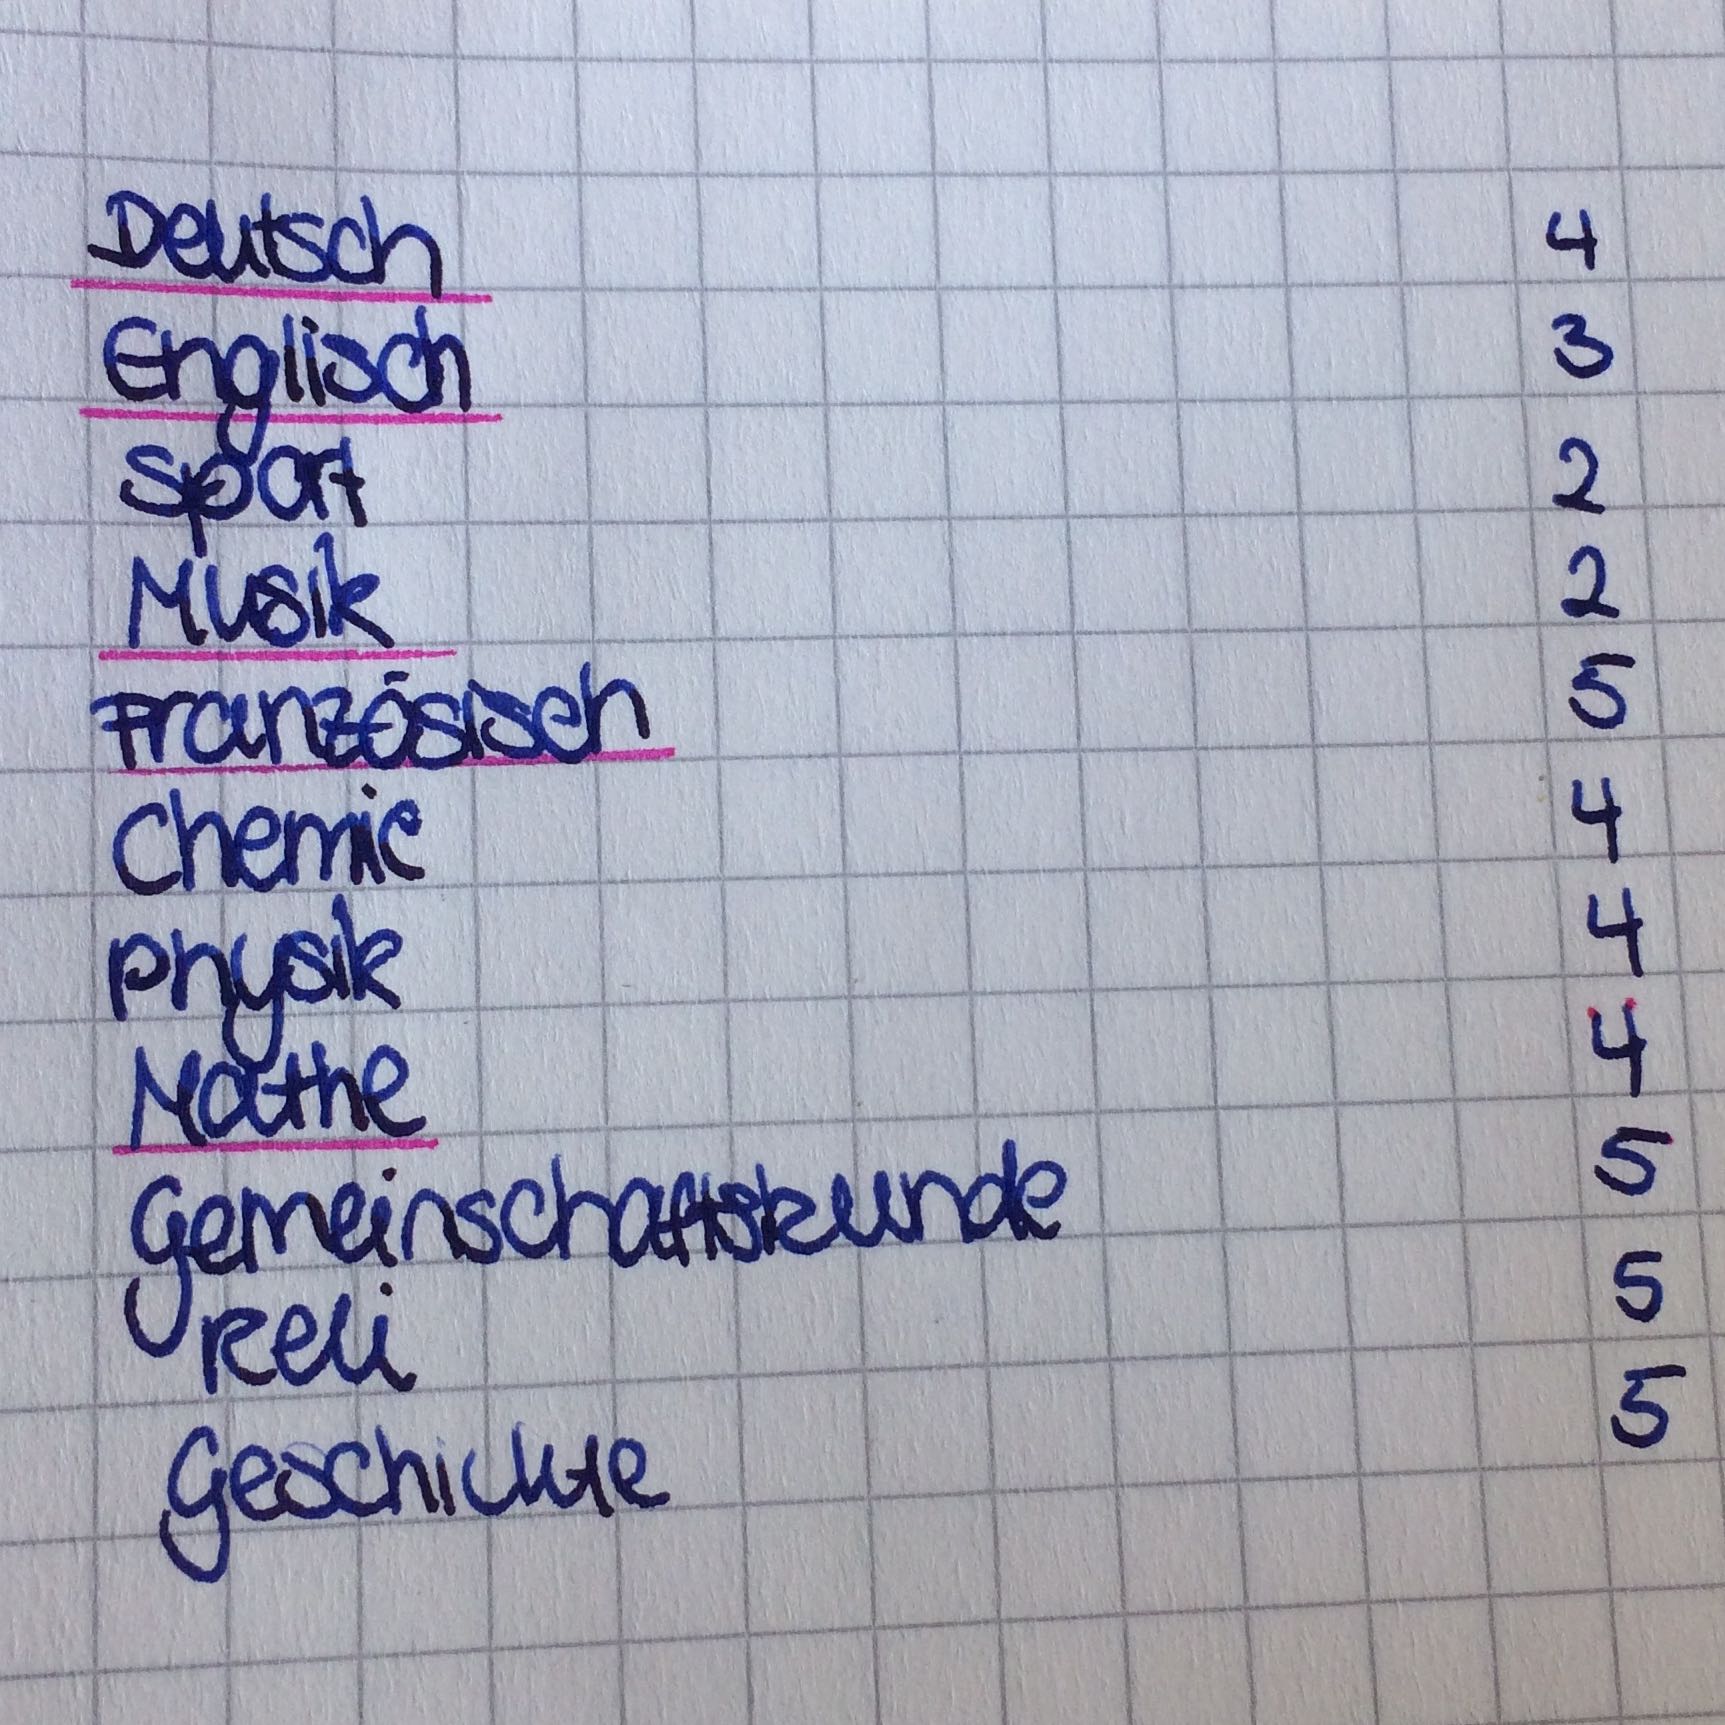 Deutsch 4
Englisch 3
Sport 2
Musik 2
Französisch 5
Chemie 4
Physik 4
Mathe 4
Gemeinschaftskunde 5
Reli 5
Geschichte 5